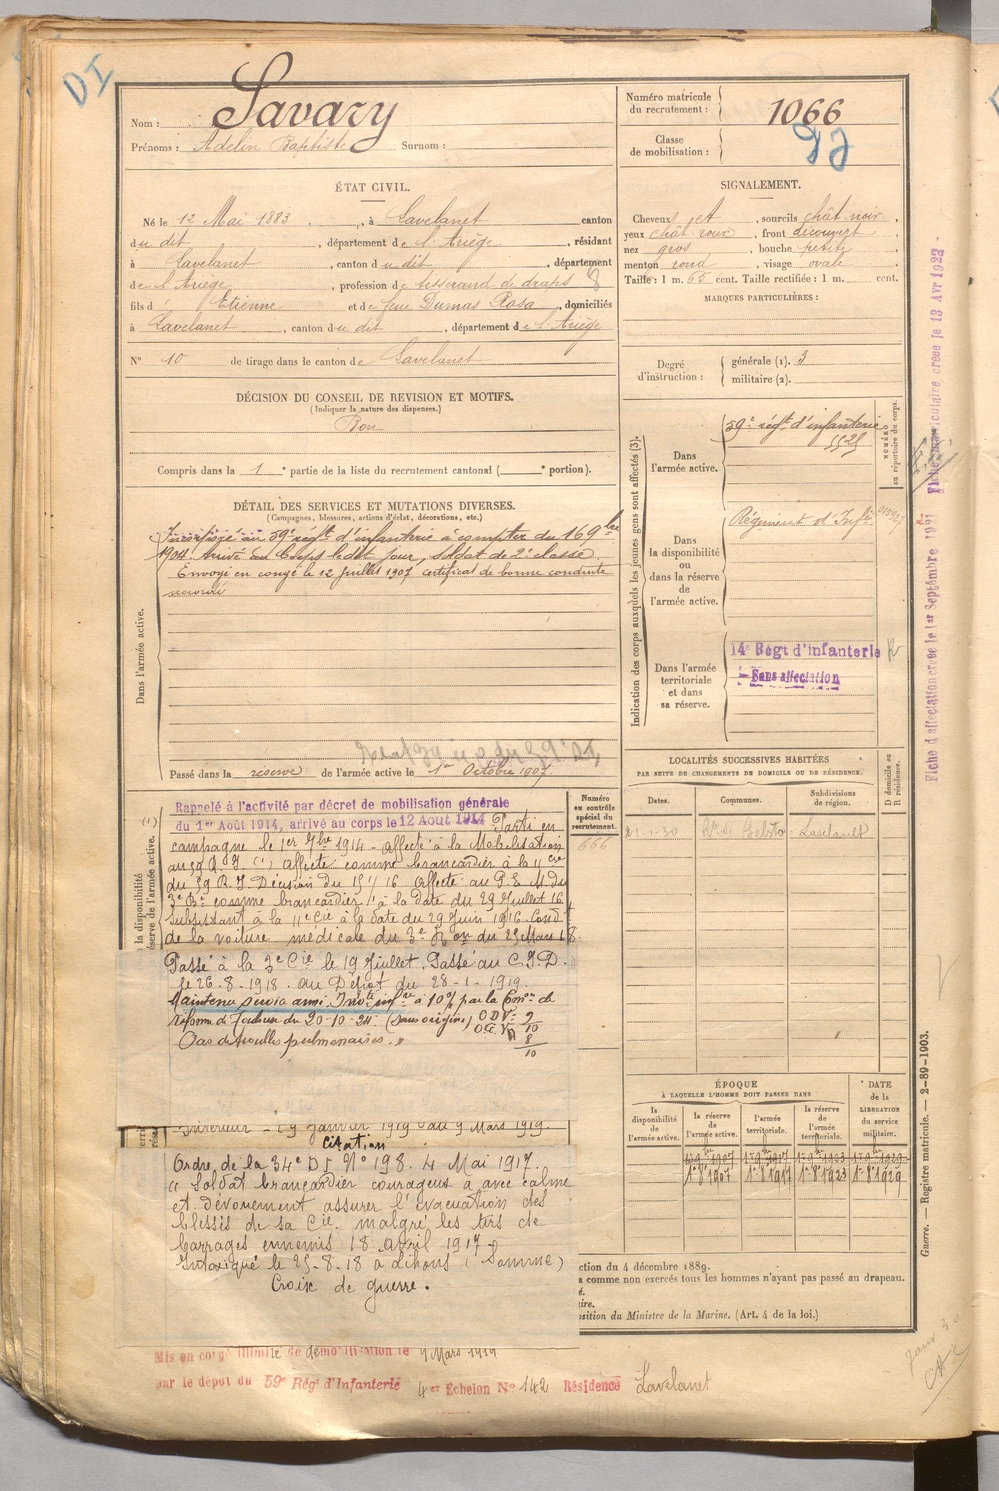 DI
Nom : Savary
Prénoms : Adelin Baptiste Surnom :
Numéro matricule du recrutement : 1066
Classe de mobilisation :
ÉTAT CIVIL.
Né le 12 Mai 1883, à Lavelanet canton
du dit, département de l'Ariège, résidant
à Lavelanet, canton du dit, département
de l'Ariège, profession de tisserand de draps 8
fils d' Etienne et de feue Dumas Rosa, domiciliés
à Lavelanet, canton du dit, département de l'Ariège
N° 10 de tirage dans le canton de Lavelanet
SIGNALEMENT.
Cheveux et, sourcils chât-noir,
yeux chât-roux, front découvert,
nez gros, bouche petite,
menton rond, visage ovale.
Taille : 1 m. 65 cent. Taille rectifiée : 1 m. cent.
MARQUES PARTICULIÈRES :
Degré d'instruction : générale (1). 3
militaire (2).
DÉCISION DU CONSEIL DE REVISION ET MOTIFS.
(Indiquer la nature des dispenses.)
Bon
Compris dans la 1e partie de la liste du recrutement cantonal ( e portion).
DÉTAIL DES SERVICES ET MUTATIONS DIVERSES.
(Campagnes, blessures, actions d'éclat, décorations, etc.)
Dans l'armée active.
Incorporé au 59e régt d'infanterie à compter du 16 9bre
1904. Arrivé au Corps le dit jour, soldat de 2e classe.
Envoyé en congé le 12 Juillet 1907 certificat de bonne conduite
accordé
Passé dans la réserve de l'armée active le 1er Octobre 1907
Indication des corps auxquels les jeunes gens sont affectés (3).
Dans l'armée active.
59e régt d'infanterie
NUMÉRO au répertoire du corps.
Dans la disponibilité ou dans la réserve de l'armée active.
Régiment d'Infie
Dans l'armée territoriale et dans sa réserve.
14e Régt d'infanterie
Sans affectation
Fiche d'affectation créée le 1er Septembre 1921 Fiche matriculaire, créée le 13 Avr 1922
LOCALITÉS SUCCESSIVES HABITÉES
PAR SUITE DE CHANGEMENTS DE DOMICILE OU DE RÉSIDENCE.
Dates. Communes. Subdivisions de région. D domicile ou R résidence.
Numéro au contrôle spécial du recrutement.
666
la disponibilité
réserve de l'armée active.
(1)
Rappelé à l'activité par décret de mobilisation générale
du 1er Août 1914, arrivé au corps le 12 Août 1914 Parti en
campagne le 1er 7bre 1914 - Affecté à la Mobilisation
au 59 R.I. (1) Affecté comme brancardier à la 11e Cie
du 59 R.I. Décision du 15/1/16 Affecté au P.E.M. du
3e Bn comme brancardier à la date du 29 Juillet 16
Subsistant à la 11e Cie à la date du 29 Juin 1916. Cond
de la voiture médicale du 3e Bon du 25 Mars 18.
Passé à la 3e Cie le 19 Juillet. Passé au C.I.D.
le 26-8-1918. au Dépôt du 28-1-1919.
Maintenu service armé. Invte infre à 10% par la Comon de
réforme de Toulouse du 20-10-24. (sans origine) ODV= 9/10
OGV= 8/10
Pas de troubles pulmonaires."
Intérieur - 29 Janvier 1919 au 9 Mars 1919.
Citation
Ordre de la 34e DI N° 198. 4 Mai 1917.
" Soldat brancardier courageux a avec calme
et dévouement assurer l'évacuation des
blessés de sa Cie malgré les tirs de
barrages ennemis 18 avril 1917 "
Intoxiqué le 25-8-18 à Lihons (Somme)
Croix de guerre.
ÉPOQUE
À LAQUELLE L'HOMME DOIT PASSER DANS
la disponibilité de l'armée active. la réserve de l'armée active. l'armée territoriale. la réserve de l'armée territoriale.
DATE de la LIBÉRATION du service militaire.
1er 9bre 1907 1er 9bre 1917 1er 9bre 1923 1er 9bre 1929
1er 8bre 1907 1er 8bre 1917 1er 8bre 1923 1er 8bre 1929
ction du 4 décembre 1889.
a comme non exercés tous les hommes n'ayant pas passé au drapeau.
é.
ire.
osition du Ministre de la Marine. (Art. 4 de la loi.)
Guerre. — Registre matricule. — 2-89-1903.
Mis en congé illimité de démobilisation le 9 Mars 1919
par le dépôt du 59e Régt d'Infanterie 4er Echelon N° 142 Résidence Lavelanet